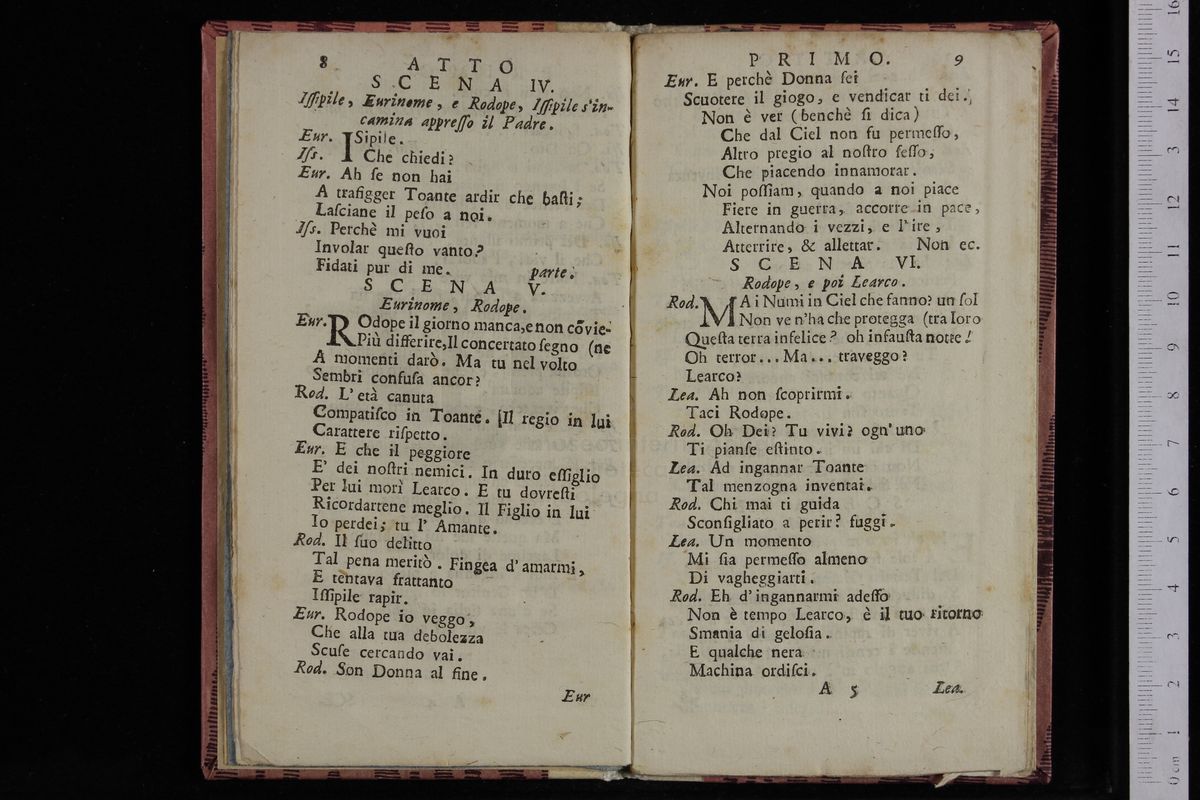 8 ATTO
SCENA IV.
Iſſipile, Eurinome, e Rodope, Iſſipile s'in-
camina appreſſo il Padre.
Eur. ISipile.
Iſs. Che chiedi?
Eur. Ah ſe non hai
A trafigger Toante ardir che baſti;
Laſciane il peſo a noi.
Iſs. Perchè mi vuoi
Involar queſto vanto?
Fidati pur di me. parte.
SCENA V.
Eurinome, Rodope.
Eur. ROdope il giorno manca,e non cōvie-
Più differire,Il concertato ſegno (ne
A momenti darò. Ma tu nel volto
Sembri confuſa ancor?
Rod. L' età canuta
Compatiſco in Toante. [Il regio in lui
Carattere riſpetto.
Eur. E che il peggiore
E' dei noſtri nemici. In duro eſſiglio
Per lui morì Learco. E tu dovreſti
Ricordartene meglio. Il Figlio in lui
Io perdei; tu l' Amante.
Rod. Il ſuo delitto
Tal pena meritò. Fingea d' amarmi,
E tentava frattanto
Iſſipile rapir.
Eur. Rodope io veggo,
Che alla tua debolezza
Scuſe cercando vai.
Rod. Son Donna al fine.
Eur
PRIMO. 9
Eur. E perchè Donna ſei
Scuotere il giogo, e vendicar ti dei.
Non è ver (benchè ſi dica)
Che dal Ciel non fu permeſſo,
Altro pregio al noſtro ſeſſo,
Che piacendo innamorar.
Noi poſſiam, quando a noi piace
Fiere in guerra, accorte in pace,
Alternando i vezzi, e l' ire,
Atterrire, & allettar. Non ec.
SCENA VI.
Rodope, e poi Learco.
Rod. MA i Numi in Ciel che fanno? un ſol
Non ve n'ha che protegga (tra loro
Queſta terra infelice? oh infauſta notte!
Oh terror... Ma... traveggo?
Learco?
Lea. Ah non ſcoprirmi.
Taci Rodope.
Rod. Oh Dei? Tu vivi? ogn' uno
Ti pianſe eſtinto.
Lea. Ad ingannar Toante
Tal menzogna inventai.
Rod. Chi mai ti guida
Sconſigliato a perir? fuggi.
Lea. Un momento
Mi ſia permeſſo almeno
Di vagheggiarti.
Rod. Eh d' ingannarmi adeſſo
Non è tempo Learco, è il tuo ritorno
Smania di geloſia.
E qualche nera
Machina ordiſci.
A 5 Lea.
0 cm 1 2 3 4 5 6 7 8 9 10 11 12 13 14 15 16